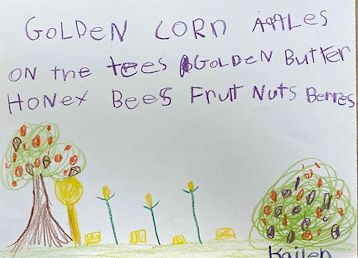 GOLDEN CORN APPLES
ON the tees GOLDEN Butter
HONEY Bees Fruit Nuts Berres
Kaijen